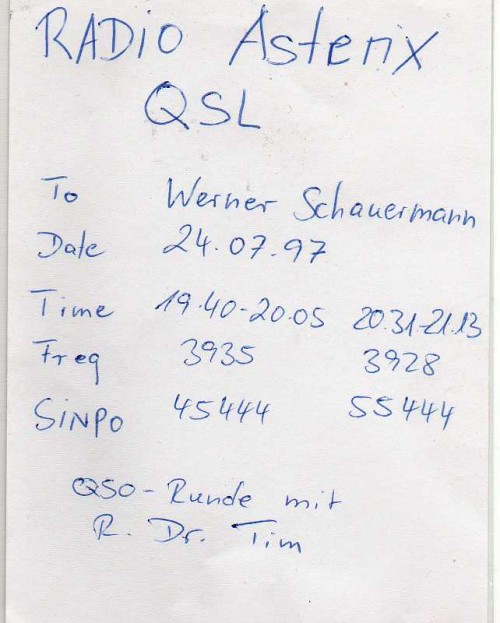 RADIO Asterix
QSL
To Werner Schauermann
Date 24.07.97
Time 19.40-20.05 20.31-21.13
Freq 3935 3928
SINPO 45444 55444
QSO-Runde mit
R. Dr. Tim